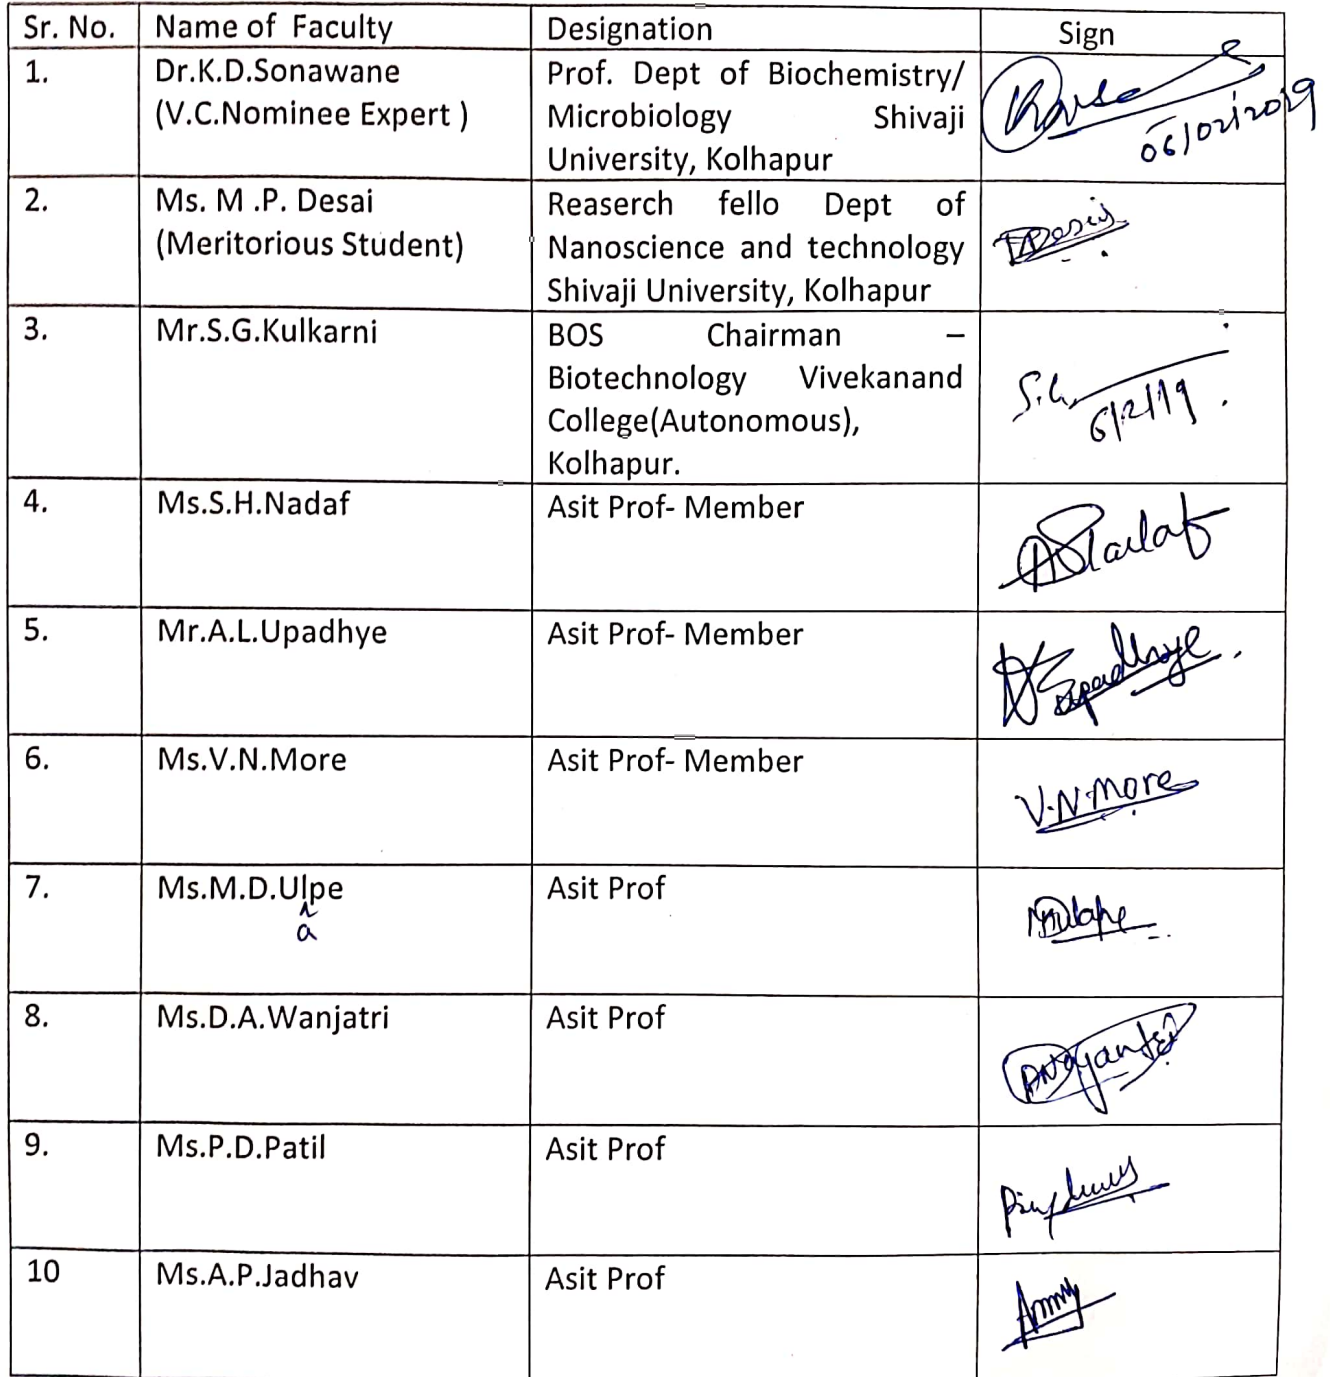 Sr. No. Name of Faculty Designation Sign
1. Dr.K.D.Sonawane Prof. Dept of Biochemistry/
(V.C.Nominee Expert ) Microbiology Shivaji
University, Kolhapur
06/02/2019
2. Ms. M .P. Desai Reaserch fello Dept of
(Meritorious Student) Nanoscience and technology
Shivaji University, Kolhapur
3. Mr.S.G.Kulkarni BOS Chairman –
Biotechnology Vivekanand
College(Autonomous),
Kolhapur.
6/2/19
4. Ms.S.H.Nadaf Asit Prof- Member
5. Mr.A.L.Upadhye Asit Prof- Member
6. Ms.V.N.More Asit Prof- Member
V.N.More
7. Ms.M.D.Ulpe Asit Prof
a
8. Ms.D.A.Wanjatri Asit Prof
9. Ms.P.D.Patil Asit Prof
10 Ms.A.P.Jadhav Asit Prof